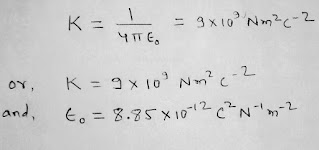 K = 1/4πε₀ = 9×10⁹ Nm²C⁻²
or, K = 9×10⁹ Nm²C⁻²
and, ε₀ = 8.85×10⁻¹² C²N⁻¹m⁻²